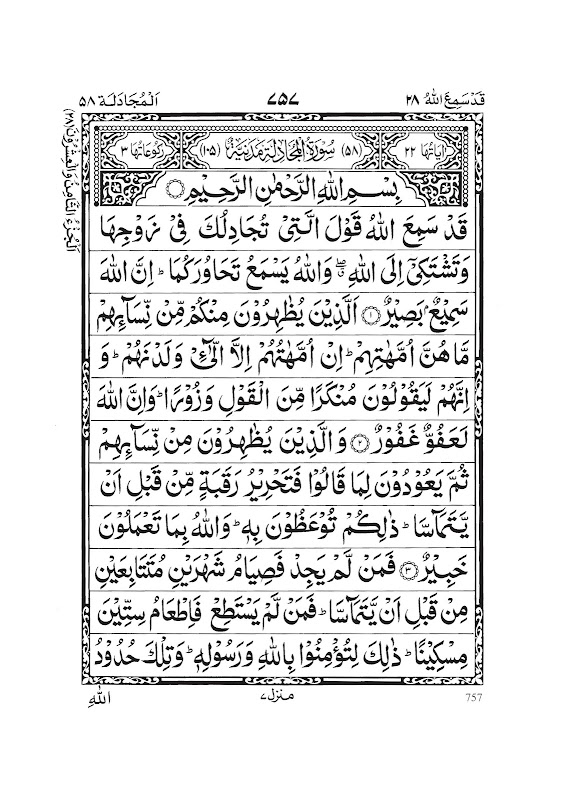 قَدْسَمِعَ اللّٰهُ ۲۸
۷۵۷
اَلْمُجَادَلَة ۵۸
اَلْجُزْءُ الثَّامِنُ وَالْعِشْرُوْنَ (۲۸)
اٰیَاتُهَا ۲۲
(۵۸) سُوْرَةُ الْمُجَادَلَةِ مَدَنِيَّةٌ (۱۰۵)
رُكُوْعَاتُهَا ۳
بِسْمِ اللّٰهِ الرَّحْمٰنِ الرَّحِيْمِ
قَدْ سَمِعَ اللّٰهُ قَوْلَ الَّتِيْ تُجَادِلُكَ فِيْ زَوْجِهَا
وَتَشْتَكِيْٓ اِلَى اللّٰهِ ۖ وَاللّٰهُ يَسْمَعُ تَحَاوُرَكُمَا ؕ اِنَّ اللّٰهَ
سَمِيْعٌۢ بَصِيْرٌ ۱ اَلَّذِيْنَ يُظٰهِرُوْنَ مِنْكُمْ مِّنْ نِّسَآئِهِمْ
مَّا هُنَّ اُمَّهٰتِهِمْ ؕ اِنْ اُمَّهٰتُهُمْ اِلَّا الّٰٓـِٔيْ وَلَدْنَهُمْ ؕ وَ
اِنَّهُمْ لَيَقُوْلُوْنَ مُنْكَرًا مِّنَ الْقَوْلِ وَزُوْرًا ؕ وَاِنَّ اللّٰهَ
لَعَفُوٌّ غَفُوْرٌ ۲ وَالَّذِيْنَ يُظٰهِرُوْنَ مِنْ نِّسَآئِهِمْ
ثُمَّ يَعُوْدُوْنَ لِمَا قَالُوْا فَتَحْرِيْرُ رَقَبَةٍ مِّنْ قَبْلِ اَنْ
يَّتَمَآسَّا ؕ ذٰلِكُمْ تُوْعَظُوْنَ بِهٖ ؕ وَاللّٰهُ بِمَا تَعْمَلُوْنَ
خَبِيْرٌ ۳ فَمَنْ لَّمْ يَجِدْ فَصِيَامُ شَهْرَيْنِ مُتَتَابِعَيْنِ
مِنْ قَبْلِ اَنْ يَّتَمَآسَّا ؕ فَمَنْ لَّمْ يَسْتَطِعْ فَاِطْعَامُ سِتِّيْنَ
مِسْكِيْنًا ؕ ذٰلِكَ لِتُؤْمِنُوْا بِاللّٰهِ وَرَسُوْلِهٖ ؕ وَتِلْكَ حُدُوْدُ
757
منزل ۷
اللّٰهِ